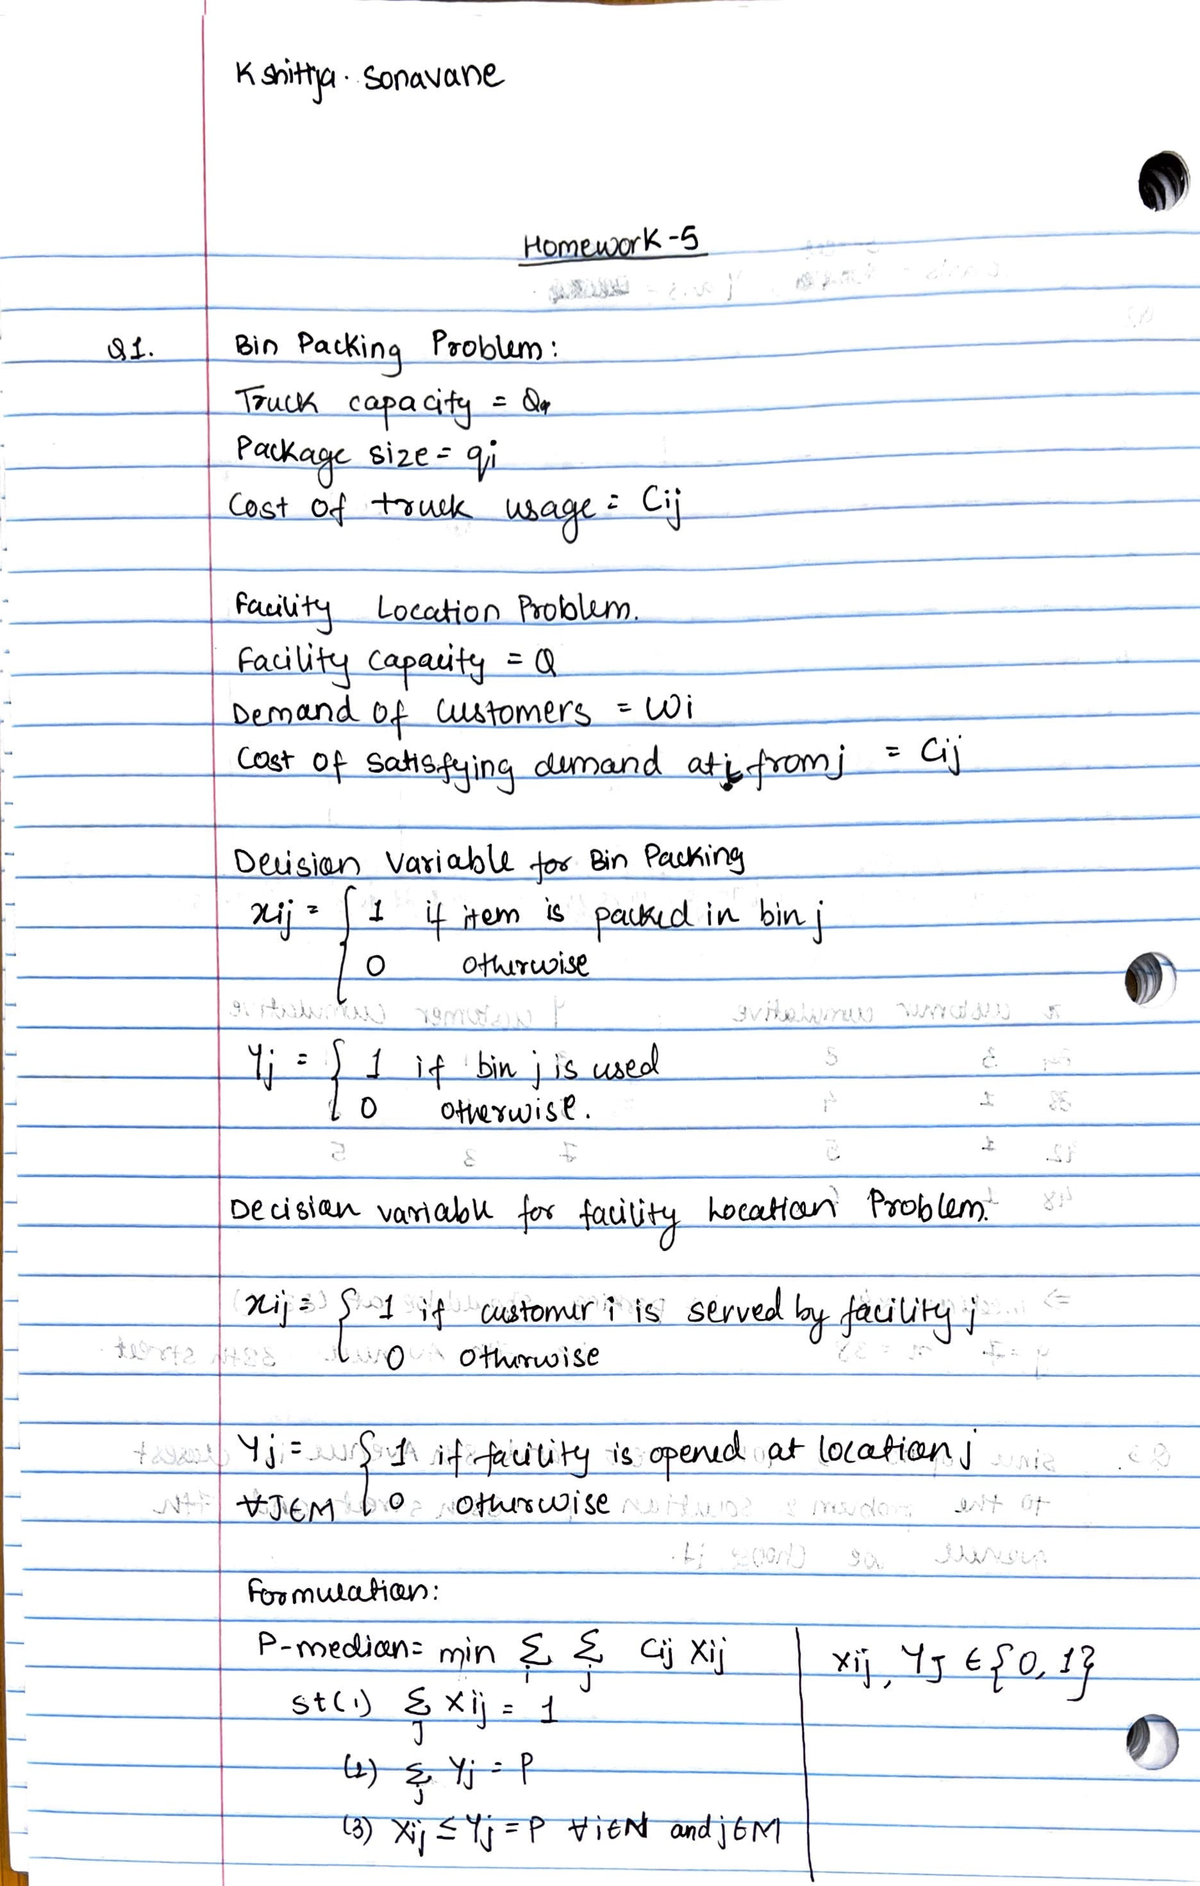 Kshitija. Sonavane
Homework-5
Q1. Bin Packing Problem:
Truck capacity = Q
Package size = qi
Cost of truck usage = Cij
Facility Location Problem.
Facility capacity = Q
Demand of customers = Wi
Cost of satisfying demand at i from j = Cij
Decision Variable for Bin Packing
xij = { 1 if item is packed in bin j
0 otherwise
Yj = { 1 if bin j is used
0 otherwise.
Decision variable for facility Location Problem.
xij = { 1 if customer i is served by facility j
0 otherwise
Yj = { 1 if facility is opened at location j
∀J∈M 0 otherwise
Formulation:
P-median = min Σi Σj Cij Xij
Xij, YJ ∈ {0, 1}
st (1) ΣJ Xij = 1
(2) Σj Yj = P
(3) Xij ≤ Yj = P ∀i∈N and j∈M